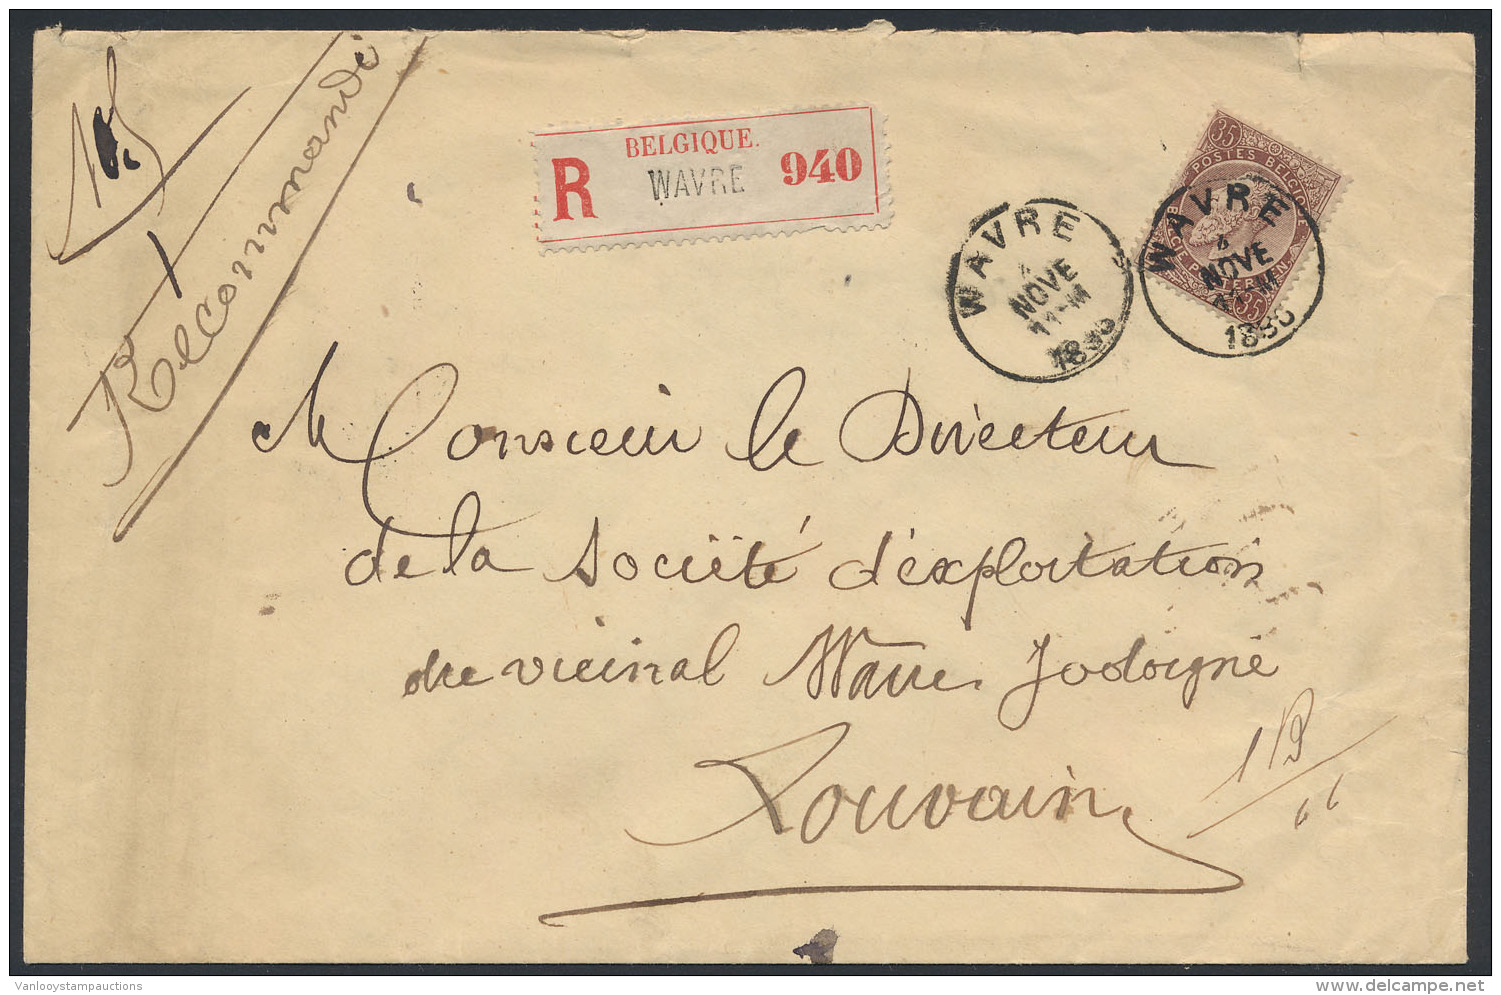 Recommandé
BELGIQUE.
R WAVRE 940
35
POSTES BELGIQUE
35
WAVRE
4
NOVE
11-M
WAVRE
4
NOVE
11-M
Monsieur le Directeur
de la Société d'exploitation
du vicinal Wavre Jodoigne
Louvain
Vanlooystampauctions
delcampe.net